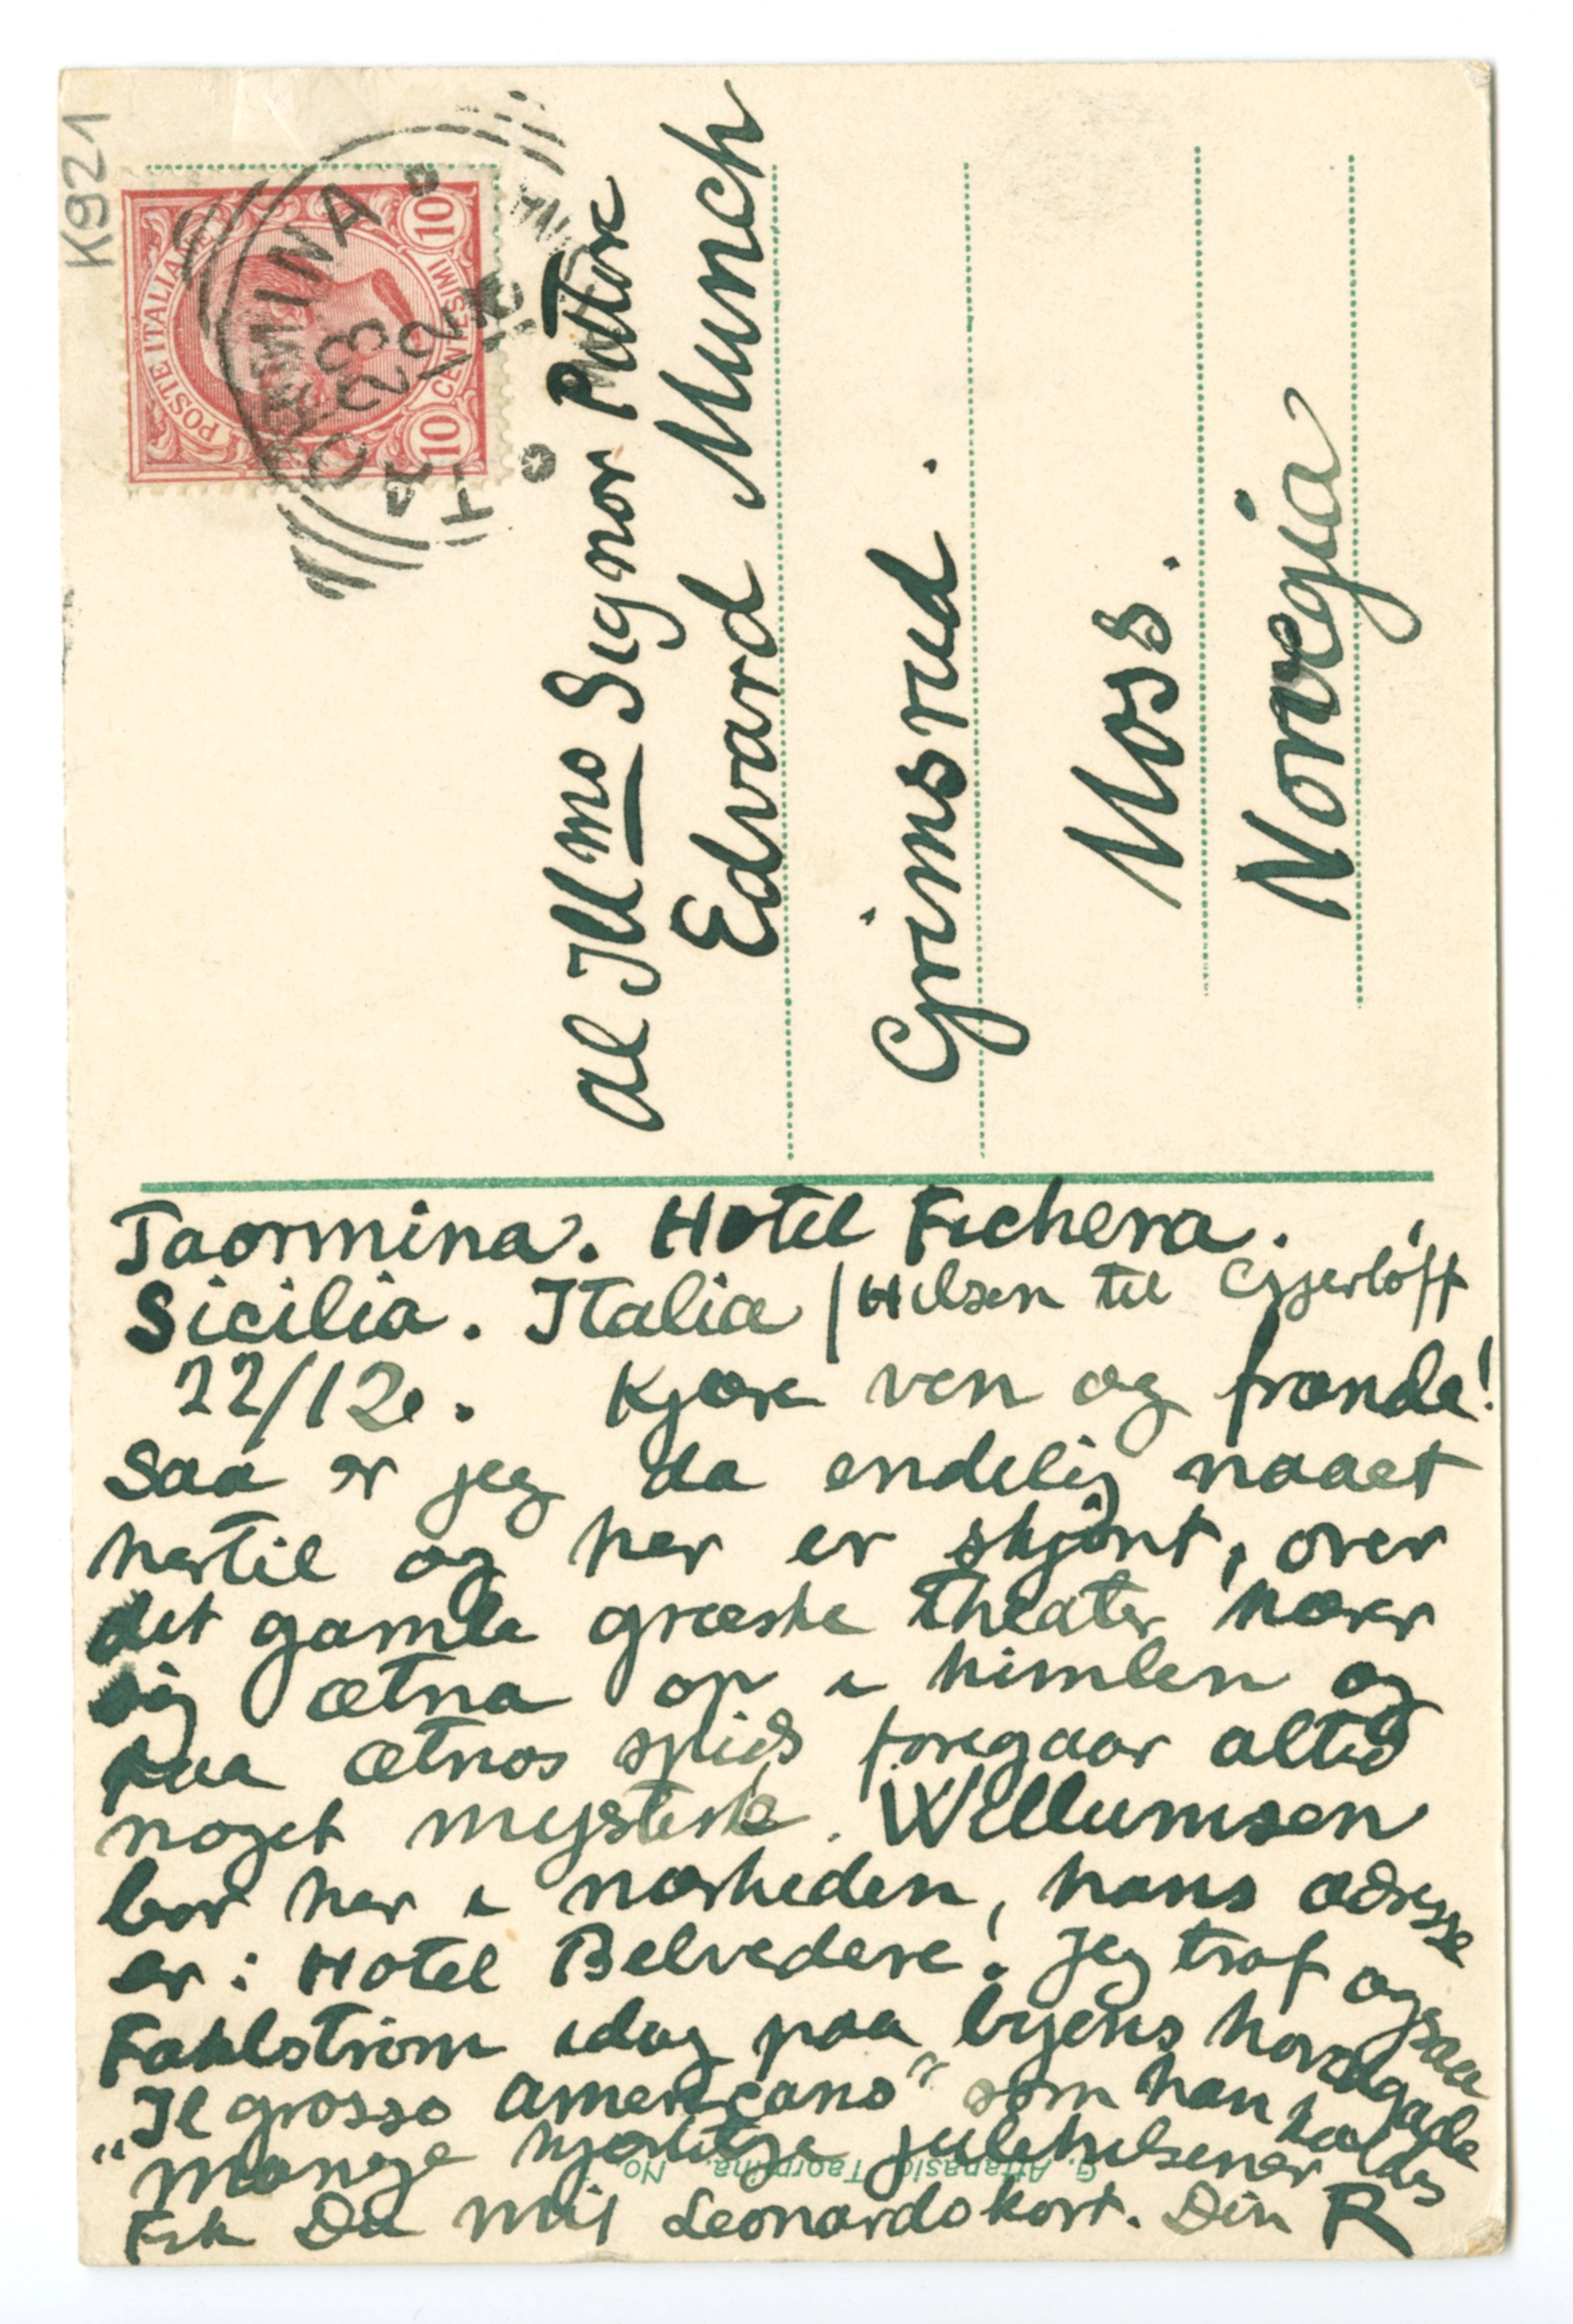 K921
POSTE ITALIANE
10 CENTESIMI 10
TAORMINA
23 12
al Ill mo Signor Pittore
Edvard Munch
Grimsrud.
Moss.
Norvegia
Taormina. Hotel Fichera.
Sicilia. Italia / Hilsen til Gjerløff
22/12. Kjære ven og frænde!
Saa er jeg da endelig naaet
hertil og her er skjønt, over
det gamle græske theater hæver
sig Ætna op i himlen og
paa Ætnas spids foregaar altid
noget mystisk. Willumsen
bor her i nærheden, hans adresse
er: Hotel Belvedere! Jeg traf ogsaa
Fahlstrøm idag paa byens hovedgade
„Il grosso americano" som han kaldes
Mange hjertelige julehilsener
Fik Du mit Leonardokort. Din R
G. Attanasio, Taormina. No